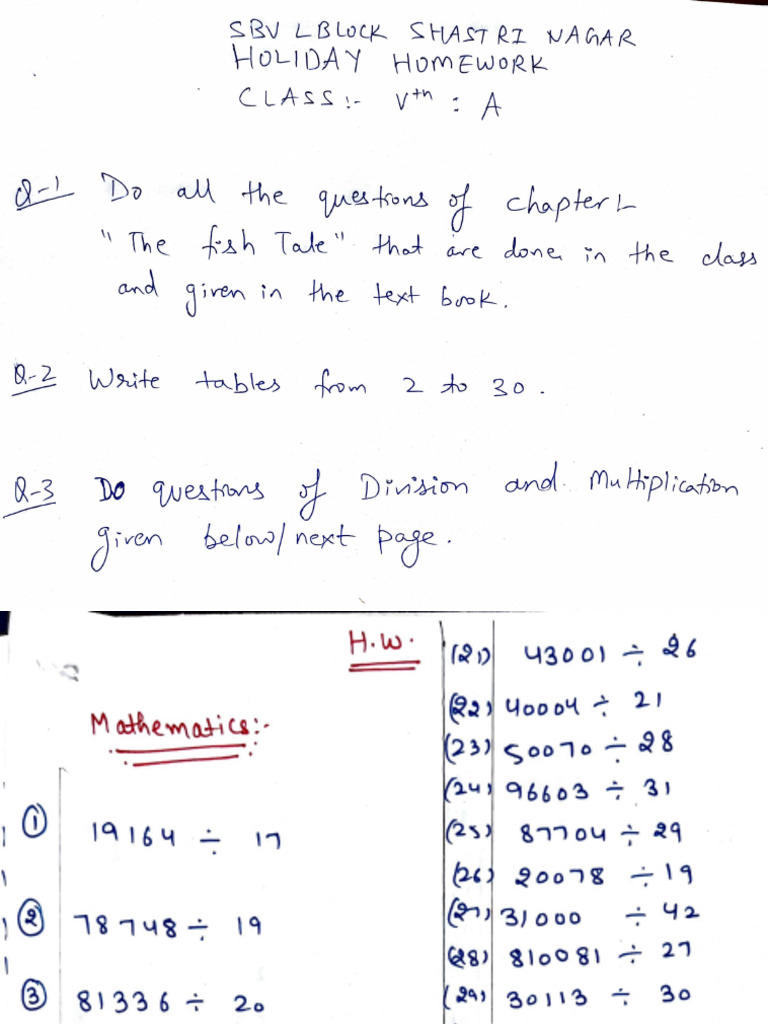 SBV L BLOCK SHASTRI NAGAR
HOLIDAY HOMEWORK
CLASS:- Vth : A
Q-1 Do all the questions of chapter 1
"The fish Tale" that are done in the class
and given in the text book.
Q-2 Write tables from 2 to 30.
Q-3 Do questions of Division and Multiplication
given below/next page.
H.W.
Mathematics:-
① 19164 ÷ 17
② 78748 ÷ 19
③ 81336 ÷ 20
(21) 43001 ÷ 26
(22) 40004 ÷ 21
(23) 50070 ÷ 28
(24) 96603 ÷ 31
(25) 87704 ÷ 29
(26) 20078 ÷ 19
(27) 31000 ÷ 42
(28) 810081 ÷ 27
(29) 30113 ÷ 30